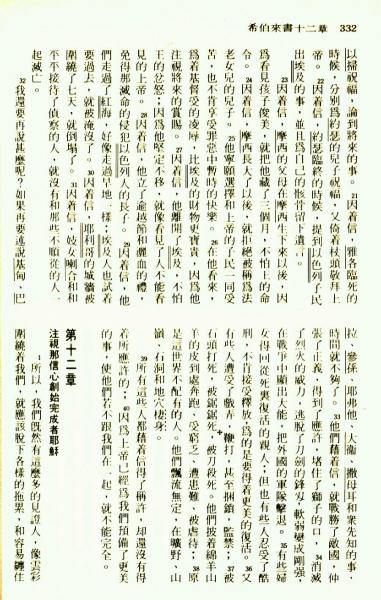 希伯來書十二章 332
以掃祝福，論到將來的事。21因着信，雅各臨死的
時候，分別爲約瑟的兒子祝福，又倚着杖頭敬拜上
帝。22因着信，約瑟臨終的時候，提到以色列子民
出埃及的事，並且爲自己的骸骨留下遺言。
23因着信，摩西的父母在摩西生下來以後，因
爲看見孩子俊美，就把他藏了三個月，不怕王的命
令。24因着信，摩西長大了以後，就拒絕被稱爲法
老女兒的兒子。25他寧願選擇和上帝的子民一同受
苦，也不肯享受罪惡中暫時的快樂。26在他看來，
爲着基督受的凌辱，比埃及的財物更寶貴，因爲他
注視將來的賞賜。27因着信，他離開了埃及，不怕
王的忿怒；因爲他堅定不移，就像看見了人不能看
見的上帝。28因着信，他立了逾越節和灑血的禮，
免得那滅命的侵犯以色列人的長子。29因着信，他
們走過了紅海，好像走過旱地一樣；埃及人也試着
要過去，就被淹沒了。30因着信，耶利哥的城牆被
圍繞了七天，就倒塌了。31因着信，妓女喇合和和
平平接待了偵察的人，就沒有和那些不順從的人一
起滅亡。
32我還要再說甚麼呢？如果再要述說基甸、巴
拉、參孫、耶弗他、大衞、撒母耳和衆先知的事，
時間就不夠了。33他們藉着信，就戰勝了敵國，伸
張了正義，得到了應許，堵住了獅子的口，34消滅
了烈火的威力，逃脫了刀劍的鋒刃，軟弱變成剛強，
在戰爭中顯出大能，把外國的軍隊擊退。35有些婦
女得回從死裏復活的親人；但也有些人忍受了酷
刑，不肯接受釋放，爲的是要得着更美的復活。36又
有些人遭受了戲弄，鞭打，甚至捆鎖，監禁；37被
石頭打死，被鋸鋸死，被刀殺死。他們披着綿羊山
羊的皮到處奔跑，受窮乏，遭患難，被虐待；38原
是這世界不配有的人。他們飄流無定，在曠野、山
嶺、石洞和地穴棲身。
39所有這些人都藉着信得了稱許，却還沒有得
着所應許的；40因爲上帝已經爲我們預備了更美
的事，使他們若不跟我們在一起，就不能完全。
第十二章
注視那信心創始完成者耶穌
1所以，我們旣然有這麼多的見證人，像雲彩
圍繞着我們，就應該脫下各樣的拖累，和容易纏住